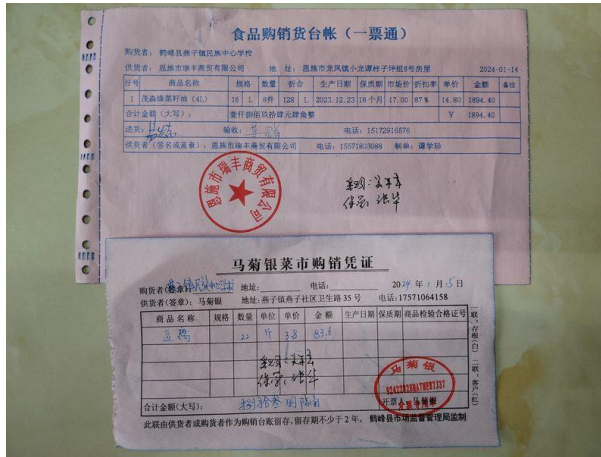 食品购销货台帐（一票通）
购货者：鹤峰县燕子镇民族中心学校
供货者：恩施市瑞丰商贸有限公司 地 址：恩施市龙凤镇小龙潭村子坪组8号房屋 2024-01-14
行号 商品名称 规格 数量 折合 生产日期 保质期 市场价 折扣率 单价 金额 备注
1 茂淼缘菜籽油（4L） 16 L 8件 128 L 2023.12.23 18个月 17.00 87% 14.80 1894.40
合计金额（大写）： 壹仟捌佰玖拾肆元肆角整 ¥ 1894.40
送货： 验收： 电话：15172916576
供货者（签名或盖章）：恩施市瑞丰商贸有限公司 电话：15571803088 制单：谭学勐
恩施市瑞丰商贸有限公司
马菊银菜市购销凭证
购货者（签章）： 地址： 电话： 2024年1月15日
供货者（签章）：马菊银 地址：燕子镇燕子社区卫生路35号 电话：17571064158
商品名称 规格 数量 单位 单价 金额 生产日期 保质期 商品检验合格证号
22 斤 3.8 83.6
马菊银
合计金额（大写）： 捌拾叁 开票人：马菊银
此联由供货者或购货者作为购销台账留存，留存期不少于2年， 鹤峰县市场监督管理局监制
一联：存根（白） 二联：客户（红）